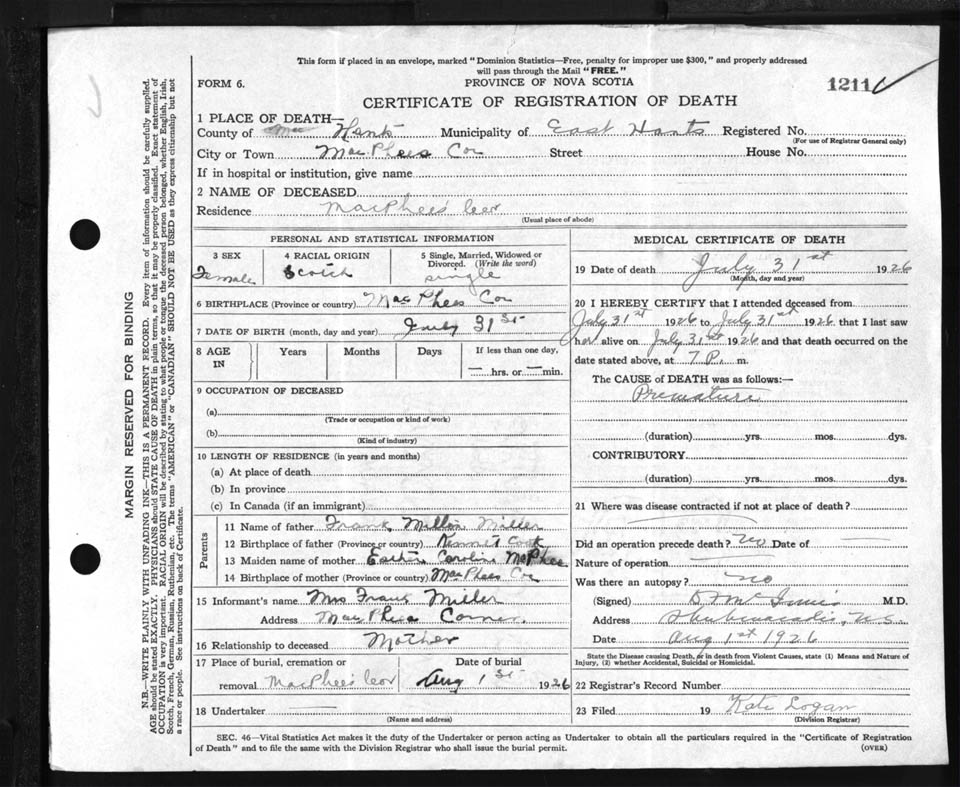 This form if placed in an envelope, marked "Dominion Statistics—Free, penalty for improper use $300," and properly addressed
will pass through the Mail "FREE."
FORM 6.
PROVINCE OF NOVA SCOTIA
1211
CERTIFICATE OF REGISTRATION OF DEATH
1 PLACE OF DEATH—
County of Hants Municipality of East Hants Registered No.
(For use of Registrar General only)
City or Town MacPhees Cor Street House No.
If in hospital or institution, give name
2 NAME OF DECEASED
Residence MacPhee's Cor
(Usual place of abode)
PERSONAL AND STATISTICAL INFORMATION
3 SEX 4 RACIAL ORIGIN 5 Single, Married, Widowed or
Divorced. (Write the word)
Female Scotch single
6 BIRTHPLACE (Province or country) MacPhees Cor
7 DATE OF BIRTH (month, day and year) July 31st
8 AGE IN Years Months Days If less than one day,
— hrs. or — min.
9 OCCUPATION OF DECEASED
(a)
(Trade or occupation or kind of work)
(b)
(Kind of industry)
10 LENGTH OF RESIDENCE (in years and months)
(a) At place of death
(b) In province
(c) In Canada (if an immigrant)
Parents
11 Name of father Frank Miller
12 Birthplace of father (Province or country) Kennet Cook
13 Maiden name of mother Caroline McPhee
14 Birthplace of mother (Province or country) MacPhees Cor
15 Informant's name Mrs Frank Miller
Address MacPhees Corner
16 Relationship to deceased Mother
17 Place of burial, cremation or Date of burial
removal MacPhee's Cor Aug 1st 1926
18 Undertaker —
(Name and address)
MEDICAL CERTIFICATE OF DEATH
19 Date of death July 31st 1926
(Month, day and year)
20 I HEREBY CERTIFY that I attended deceased from
July 31st 1926 to July 31st 1926 that I last saw
her alive on July 31st 1926 and that death occurred on the
date stated above, at 7 P. m.
The CAUSE of DEATH was as follows:—
Premature
(duration) yrs. mos. dys.
CONTRIBUTORY
(duration) yrs. mos. dys.
21 Where was disease contracted if not at place of death?
Did an operation precede death? No Date of
Nature of operation
Was there an autopsy? no
(Signed) McInnis M.D.
Address Shubenacadie, N.S.
Date Aug 1st 1926
State the Disease causing Death, or in death from Violent Causes, state (1) Means and Nature of
Injury, (2) whether Accidental, Suicidal or Homicidal.
22 Registrar's Record Number
23 Filed 19 Kate Logan
(Division Registrar)
SEC. 46—Vital Statistics Act makes it the duty of the Undertaker or person acting as Undertaker to obtain all the particulars required in the "Certificate of Registration
of Death" and to file the same with the Division Registrar who shall issue the burial permit.
(OVER)
MARGIN RESERVED FOR BINDING
N.B.—WRITE PLAINLY WITH UNFADING INK—THIS IS A PERMANENT RECORD. Every item of information should be carefully supplied.
AGE should be stated EXACTLY. PHYSICIANS should STATE CAUSE OF DEATH in plain terms, so that it may be properly classified. Exact statement of
OCCUPATION is very important. RACIAL ORIGIN will be described by stating to what people or tongue the deceased person belonged, whether English, Irish,
Scotch, French, German, Russian, Ruthenian, etc. The terms "AMERICAN" or "CANADIAN" SHOULD NOT BE USED as they express citizenship but not
a race or people. See instructions on back of Certificate.